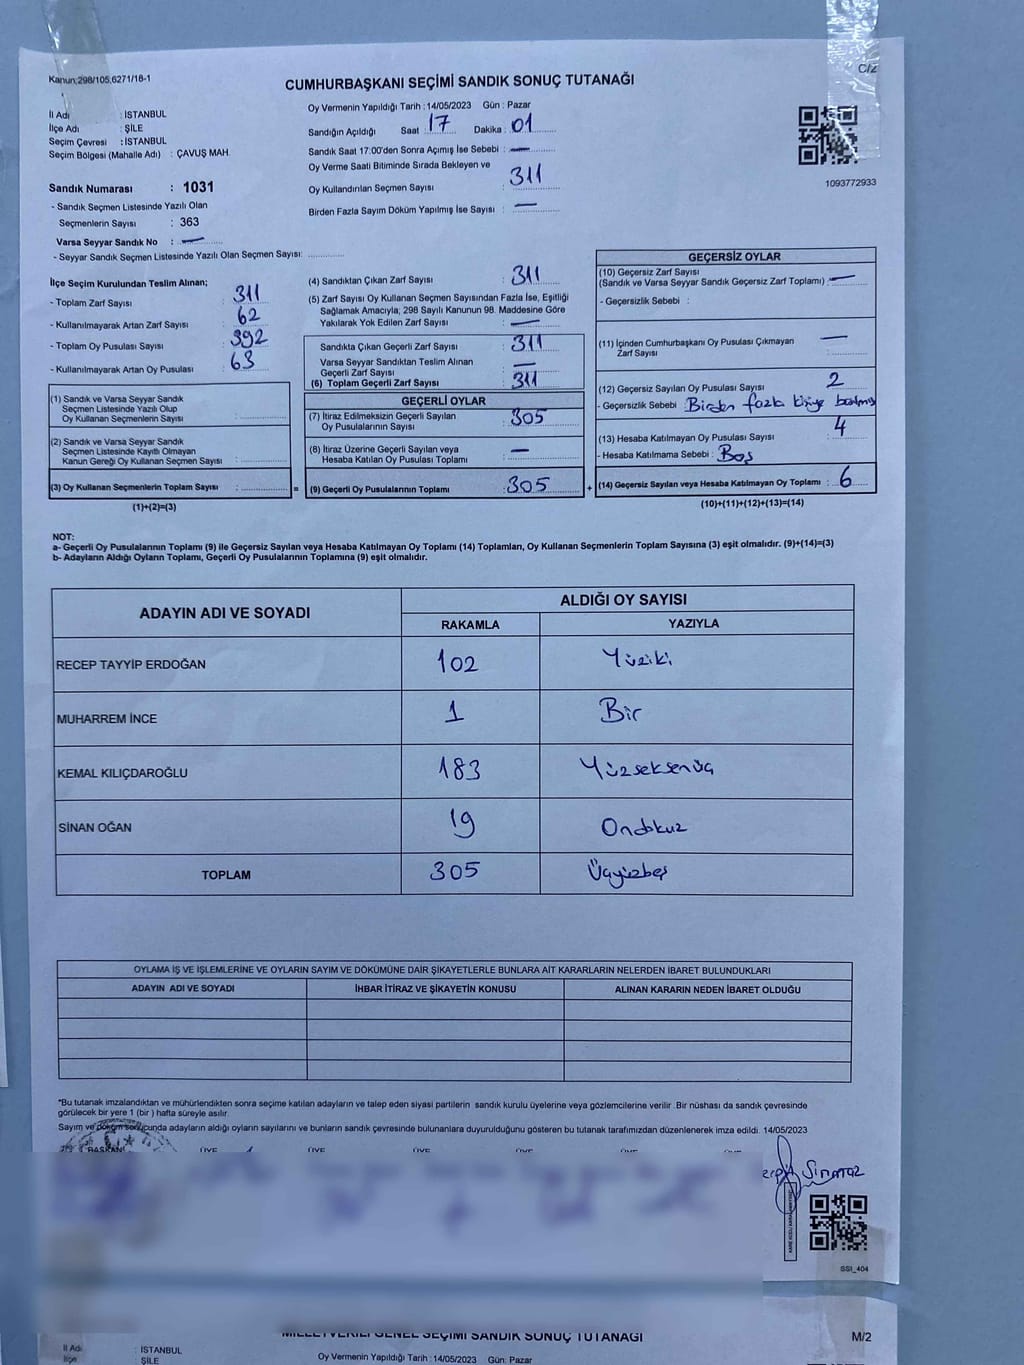 Kanun:298/105,6271/18-1
C/2
CUMHURBAŞKANI SEÇİMİ SANDIK SONUÇ TUTANAĞI
İl Adı : İSTANBUL
İlçe Adı : ŞİLE
Seçim Çevresi : İSTANBUL
Seçim Bölgesi (Mahalle Adı) : ÇAVUŞ MAH.
Sandık Numarası : 1031
- Sandık Seçmen Listesinde Yazılı Olan
Seçmenlerin Sayısı : 363
Varsa Seyyar Sandık No : —
- Seyyar Sandık Seçmen Listesinde Yazılı Olan Seçmen Sayısı:
Oy Vermenin Yapıldığı Tarih : 14/05/2023 Gün : Pazar
Sandığın Açıldığı Saat 17 Dakika : 01
Sandık Saat 17:00'den Sonra Açımış İse Sebebi : —
Oy Verme Saati Bitiminde Sırada Bekleyen ve
Oy Kullandırılan Seçmen Sayısı : 311
Birden Fazla Sayım Döküm Yapılmış İse Sayısı : —
1093772933
İlçe Seçim Kurulundan Teslim Alınan;
- Toplam Zarf Sayısı : 311
- Kullanılmayarak Artan Zarf Sayısı : 62
- Toplam Oy Pusulası Sayısı : 392
- Kullanılmayarak Artan Oy Pusulası : 63
(1) Sandık ve Varsa Seyyar Sandık
Seçmen Listesinde Yazılı Olup
Oy Kullanan Seçmenlerin Sayısı :
(2) Sandık ve Varsa Seyyar Sandık
Seçmen Listesinde Kayıtlı Olmayan
Kanun Gereği Oy Kullanan Seçmen Sayısı :
(3) Oy Kullanan Seçmenlerin Toplam Sayısı :
(1)+(2)=(3)
(4) Sandıktan Çıkan Zarf Sayısı : 311
(5) Zarf Sayısı Oy Kullanan Seçmen Sayısından Fazla İse, Eşitliği
Sağlamak Amacıyla; 298 Sayılı Kanunun 98. Maddesine Göre
Yakılarak Yok Edilen Zarf Sayısı : —
Sandıkta Çıkan Geçerli Zarf Sayısı : 311
Varsa Seyyar Sandıktan Teslim Alınan
Geçerli Zarf Sayısı : —
(6) Toplam Geçerli Zarf Sayısı : 311
GEÇERLİ OYLAR
(7) İtiraz Edilmeksizin Geçerli Sayılan
Oy Pusulalarının Sayısı : 305
(8) İtiraz Üzerine Geçerli Sayılan veya
Hesaba Katılan Oy Pusulası Toplamı : —
= (9) Geçerli Oy Pusulalarının Toplamı : 305 +
GEÇERSİZ OYLAR
(10) Geçersiz Zarf Sayısı
(Sandık ve Varsa Seyyar Sandık Geçersiz Zarf Toplamı) : —
- Geçersizlik Sebebi :
(11) İçinden Cumhurbaşkanı Oy Pusulası Çıkmayan
Zarf Sayısı : —
(12) Geçersiz Sayılan Oy Pusulası Sayısı : 2
- Geçersizlik Sebebi Birden fazla kişiye basılmış
(13) Hesaba Katılmayan Oy Pusulası Sayısı : 4
- Hesaba Katılmama Sebebi : Boş
(14) Geçersiz Sayılan veya Hesaba Katılmayan Oy Toplamı : 6
(10)+(11)+(12)+(13)=(14)
NOT:
a- Geçerli Oy Pusulalarının Toplamı (9) ile Geçersiz Sayılan veya Hesaba Katılmayan Oy Toplamı (14) Toplamları, Oy Kullanan Seçmenlerin Toplam Sayısına (3) eşit olmalıdır. (9)+(14)=(3)
b- Adayların Aldığı Oyların Toplamı, Geçerli Oy Pusulalarının Toplamına (9) eşit olmalıdır.
ADAYIN ADI VE SOYADI ALDIĞI OY SAYISI
RAKAMLA YAZIYLA
RECEP TAYYİP ERDOĞAN 102 Yüziki
MUHARREM İNCE 1 Bir
KEMAL KILIÇDAROĞLU 183 Yüzseksenüç
SİNAN OĞAN 19 Ondokuz
TOPLAM 305 Üçyüzbeş
OYLAMA İŞ VE İŞLEMLERİNE VE OYLARIN SAYIM VE DÖKÜMÜNE DAİR ŞİKAYETLERLE BUNLARA AİT KARARLARIN NELERDEN İBARET BULUNDUKLARI
ADAYIN ADI VE SOYADI İHBAR İTİRAZ VE ŞİKAYETİN KONUSU ALINAN KARARIN NEDEN İBARET OLDUĞU
*Bu tutanak imzalandıktan ve mühürlendikten sonra seçime katılan adayların ve talep eden siyasi partilerin sandık kurulu üyelerine veya gözlemcilerine verilir .Bir nüshası da sandık çevresinde
görülecek bir yere 1 (bir ) hafta süreyle asılır.
Sayım ve döküm sonucunda adayların aldığı oyların sayılarını ve bunların sandık çevresinde bulunanlara duyurulduğunu gösteren bu tutanak tarafımızdan düzenlenerek imza edildi. 14/05/2023
BAŞKAN ÜYE ÜYE ÜYE ÜYE ÜYE ÜYE
SSI_404
MİLLETVEKİLİ GENEL SEÇİMİ SANDIK SONUÇ TUTANAĞI
M/2
İl Adı : İSTANBUL
İlçe : ŞİLE
Oy Vermenin Yapıldığı Tarih : 14/05/2023 Gün: Pazar